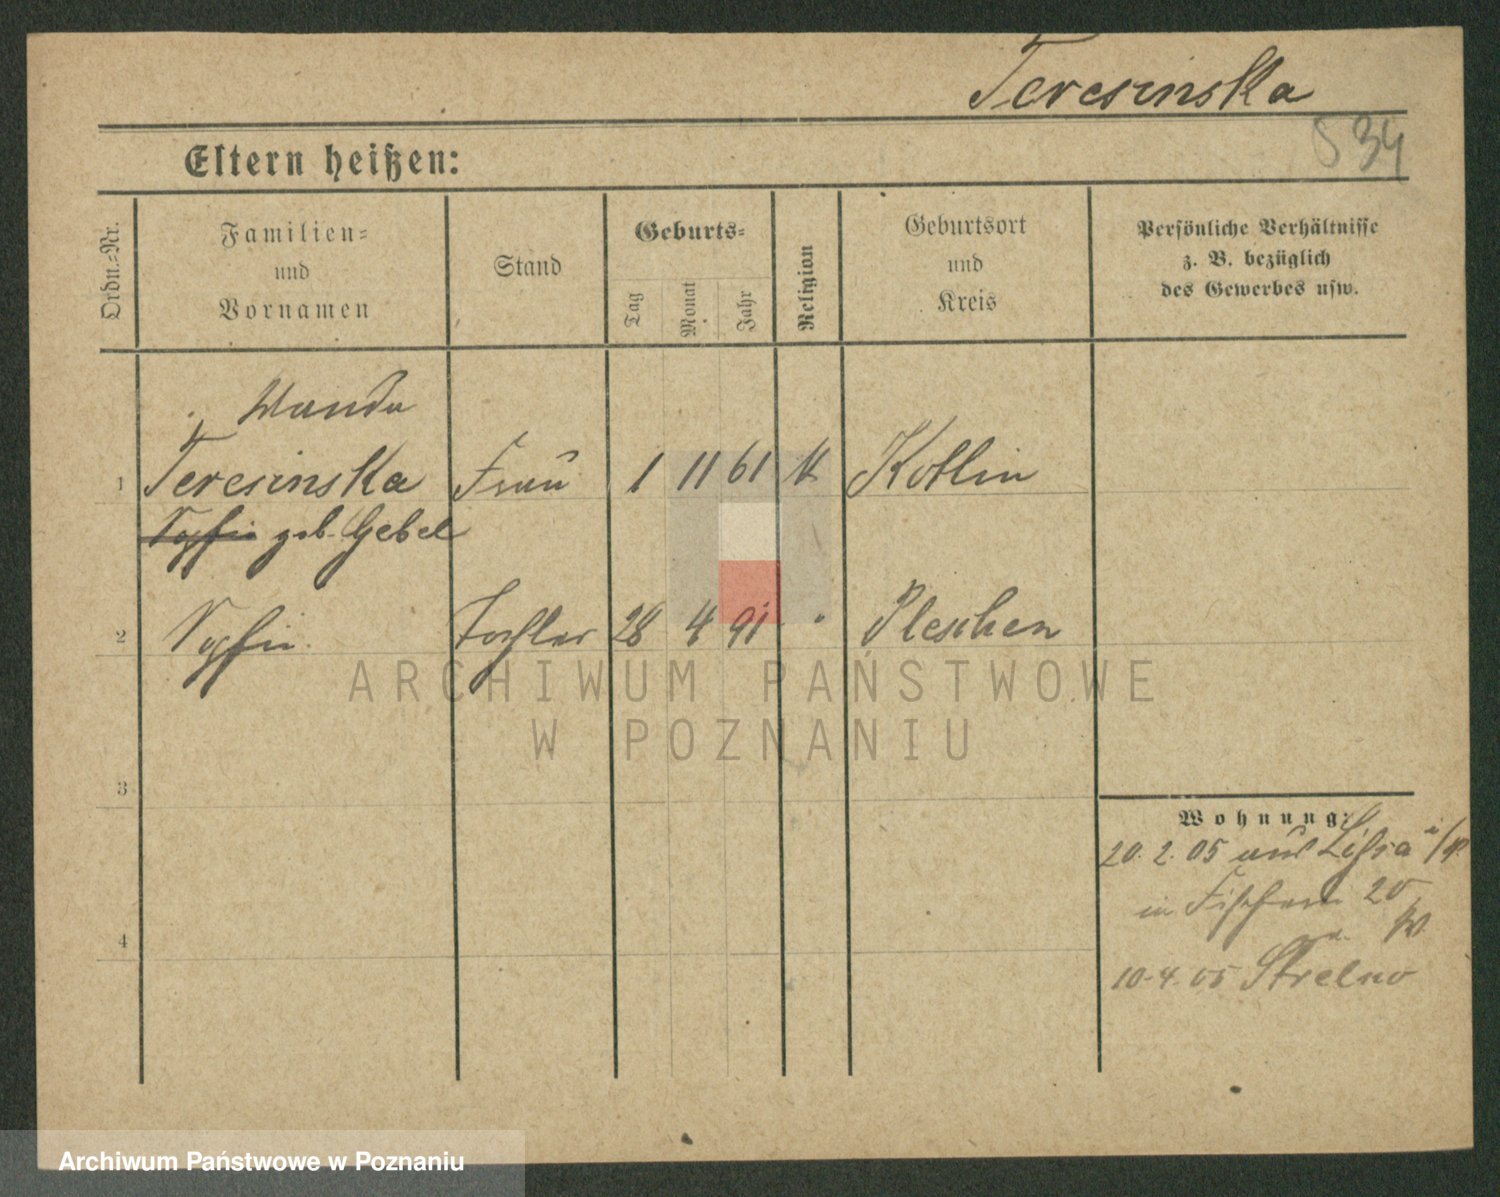 Teresinska
S 34
Eltern heißen:
Ordn.-Nr.
Familien-
und
Vornamen
Stand
Geburts-
Tag
Monat
Jahr
Religion
Geburtsort
und
Kreis
Persönliche Verhältnisse
z. B. bezüglich
des Gewerbes usw.
Wanda
1 Teresinska Frau 1 11 61 k Kotlin
Sofie geb. Gebel
2 Sofie Tochter 28 4 91 " Pleschen
ARCHIWUM PAŃSTWOWE
W POZNANIU
3
Wohnung:
20. 2. 05 aus Lissa i/P.
in 20
4
10. 4. 05 Strelno
Archiwum Państwowe w Poznaniu